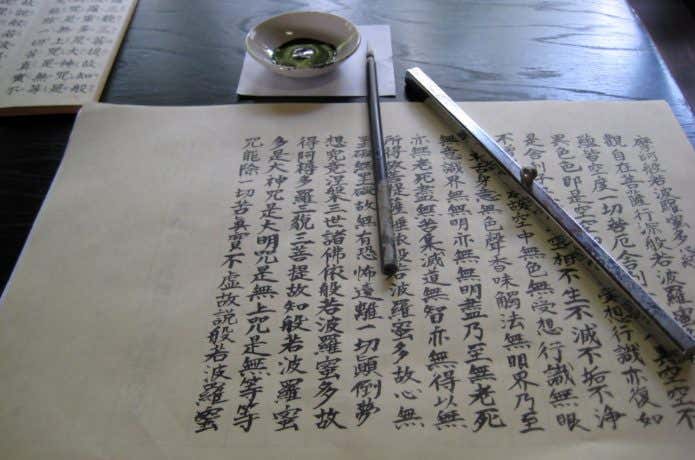 摩訶般若波羅蜜多
觀自在菩薩行深般若波羅蜜
蘊皆空度一切苦厄舍利 空空不
異色色即是空空 受想行識亦復如
是舍利 相不生不滅不垢不淨
不增 空中無色無受想行識無眼
身意無色聲香味觸法無眼界乃至
無意識界無無明亦無無明盡乃至無老死
亦無老死盡無苦集滅道無智亦無得以無
所得故菩提薩埵依般若波羅蜜多故心無
罣礙無罣礙故無有恐怖遠離一切顛倒夢
想究竟涅槃三世諸佛依般若波羅蜜多故
得阿耨多羅三藐三菩提故知般若波羅蜜
多是大神咒是大明咒是無上咒是無等等
咒能除一切苦真實不虛故說般若波羅蜜